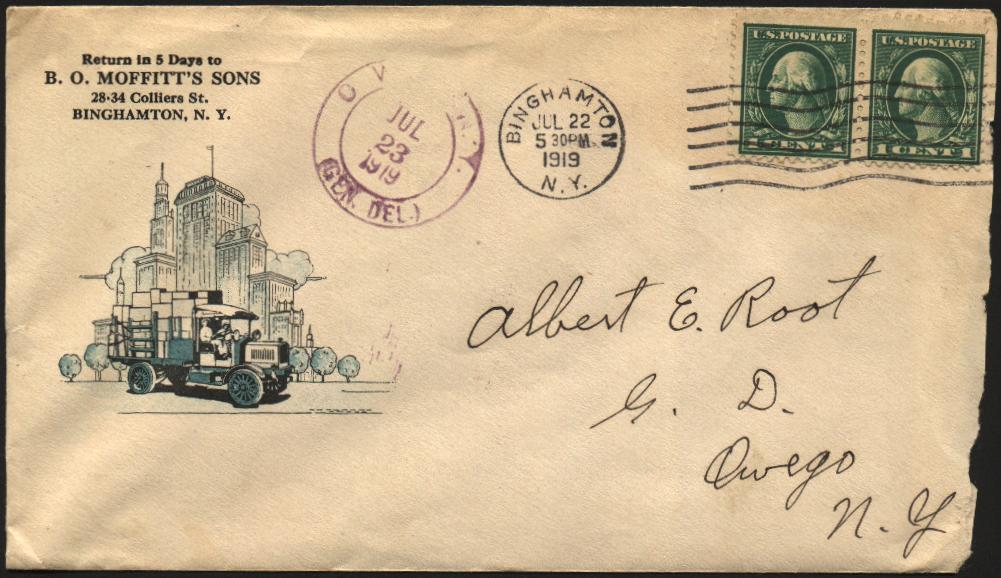 Return in 5 Days to
B. O. MOFFITT'S SONS
28-34 Colliers St.
BINGHAMTON, N. Y.
JUL
23
1919
(GEN. DEL.)
BINGHAMTON
JUL 22
5 30PM
1919
N. Y.
U.S. POSTAGE
CENT
U.S. POSTAGE
1 CENT 1
Albert E. Root
G. D.
Owego
N. Y